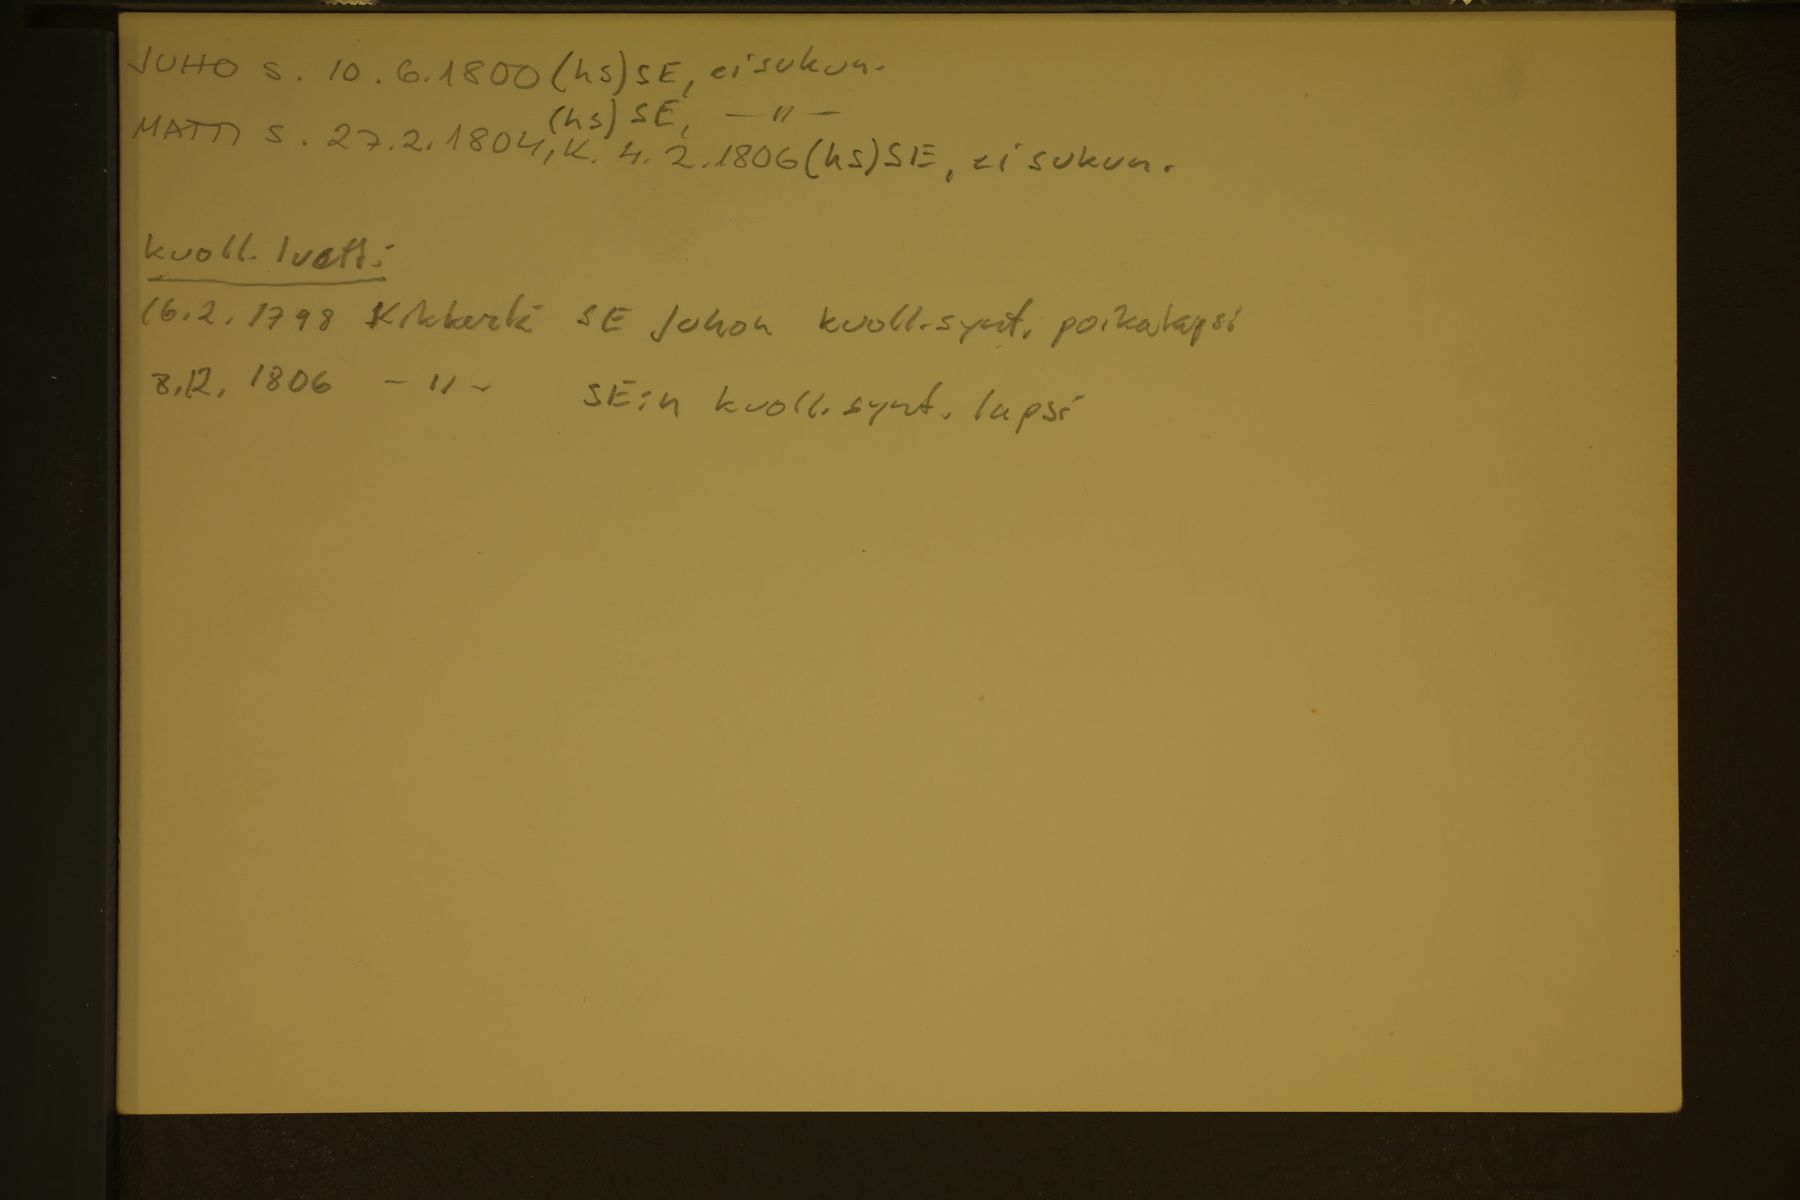 JUHO s. 10.6.1800 (hs) SE, ei sukun.
(hs) SE, — " —
MATTI s. 27.2.1804, k. 4.2.1806 (hs) SE, ei sukun.
kuoll. luett:
16.2.1798 SE Juhon kuoll.synt. poikalapsi
8.12.1806 - " - SE:n kuoll.synt. lapsi